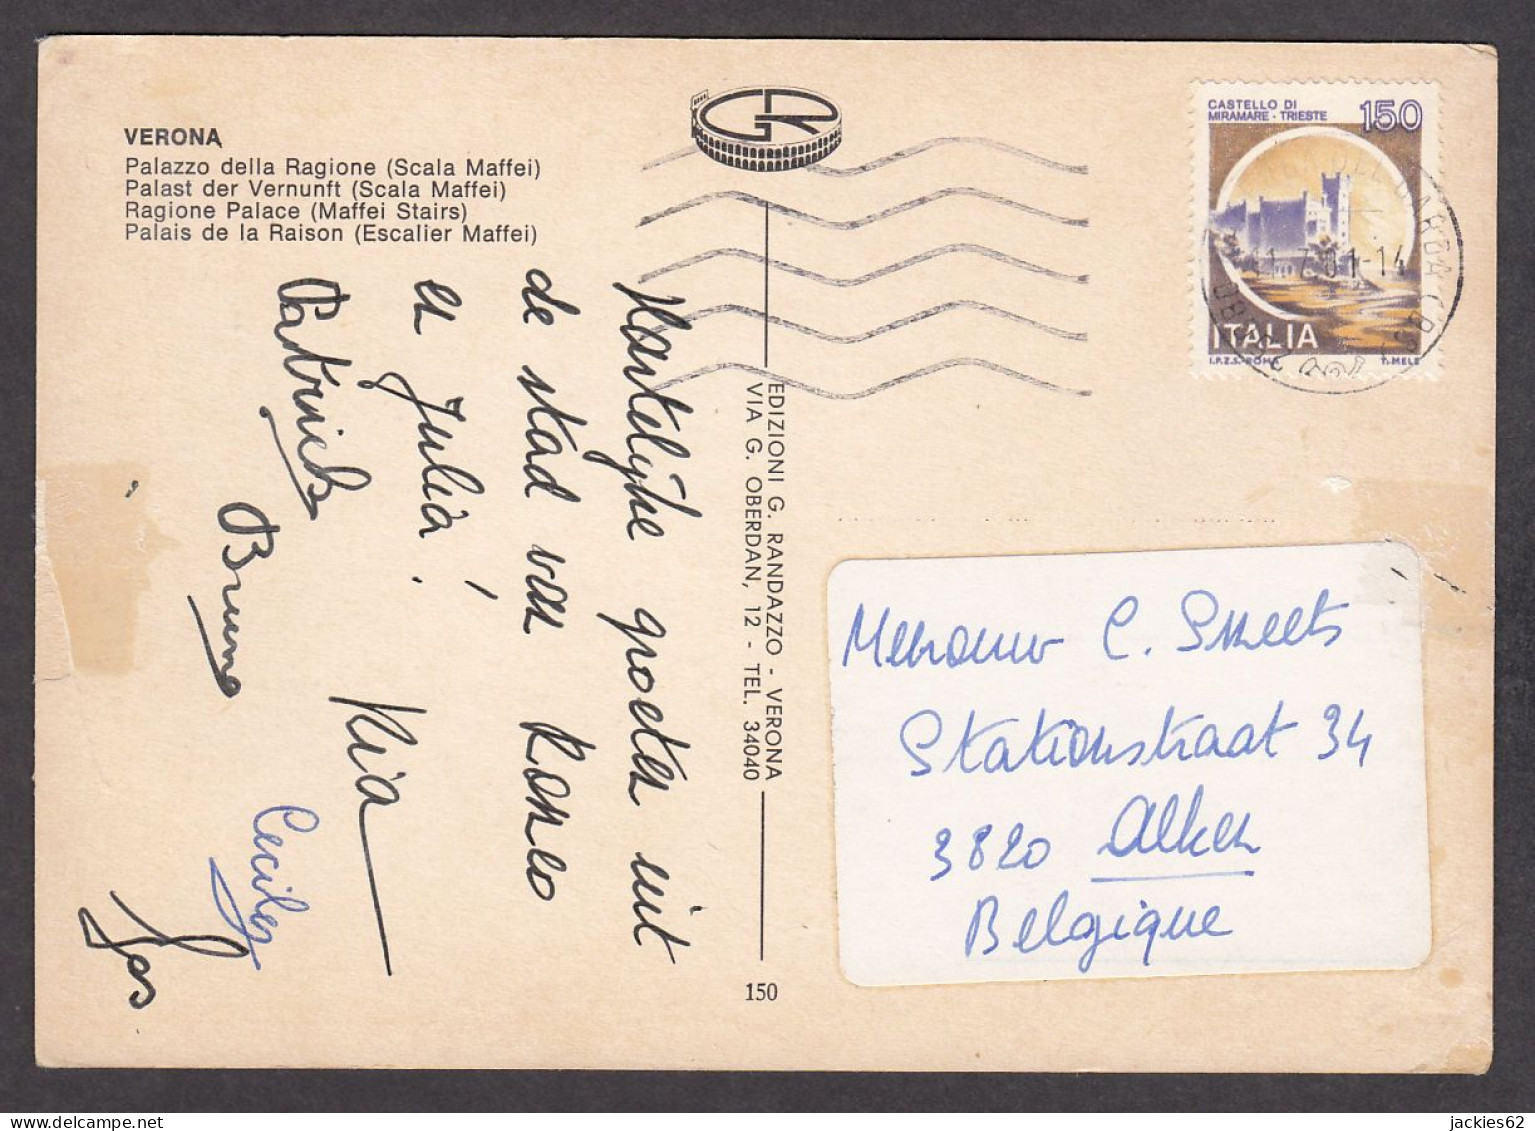 VERONA
Palazzo della Ragione (Scala Maffei)
Palast der Vernunft (Scala Maffei)
Ragione Palace (Maffei Stairs)
Palais de la Raison (Escalier Maffei)
GR
Hartelijke groeten uit
de stad van Romeo
en Julia!
Patrick
Ria
Bruno
Cecile
Jos
EDIZIONI G. RANDAZZO - VERONA
VIA G. OBERDAN, 12 - TEL. 34040
150
CASTELLO DI
MIRAMARE - TRIESTE
150
ITALIA
I.P.Z.S. - ROMA T. MELE
DEL GARDA
Mevrouw C. Smeets
Stationstraat 34
3820 Alken
Belgique
jackies62